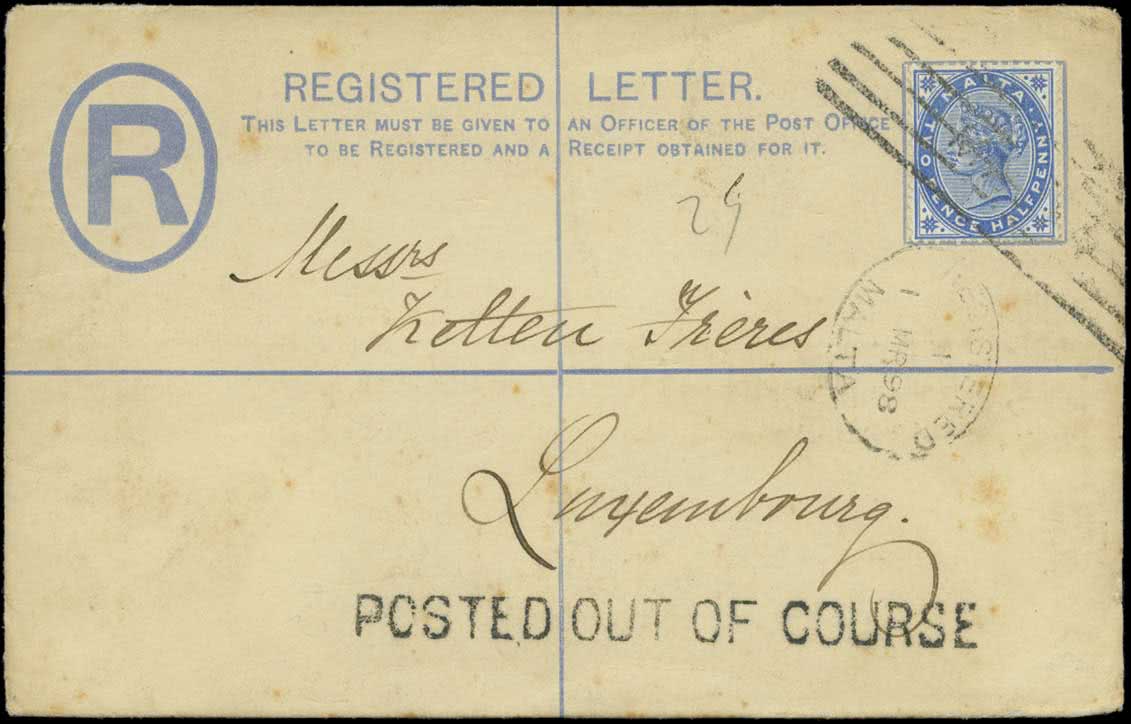 R
REGISTERED LETTER.
THIS LETTER MUST BE GIVEN TO AN OFFICER OF THE POST OFFICE
TO BE REGISTERED AND A RECEIPT OBTAINED FOR IT.
MALTA
TWO PENCE HALFPENNY
24
Messrs
Ketten Frères
REGISTERED
1
1 MR 98
MALTA
Luxembourg.
POSTED OUT OF COURSE